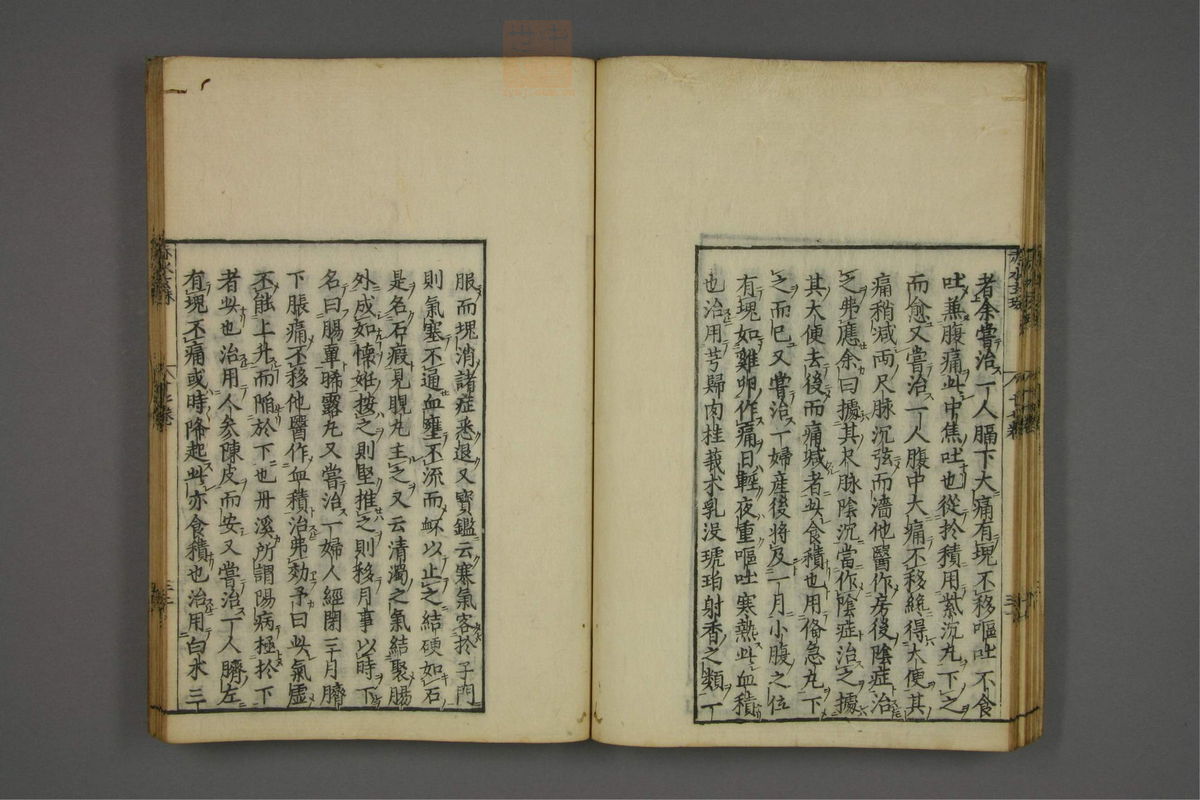 者余嘗治一人膈下大痛有塊不移嘔吐不食
吐蕪腹痛此中焦吐也從於積用紫沉丸下之
而愈又嘗治一人腹中大痛不移絲得大便其
痛稍減兩尺脉沉弦而濇他醫作房後陰症治
之弗應余曰據其尺脉陰沉當作陰症治之據
其大便去後而痛减者此食積也用俻急丸下
之而已又嘗治一婦産後將及一月小腹之位
有塊如雞卵作痛日輕夜重嘔吐寒熱此血積
也治用芎歸肉桂莪朮乳没琥珀射香之類一
服而塊消諸症悉退又寳鑑云寒氣客於子門
則氣塞不通血壅不流而衃以止之結硬如石
是名石瘕見晛丸主之又云清濁之氣結聚腸
外成如懷姙按之則堅推之則移月事以時下
名曰腸覃晞露丸又嘗治一婦人經閉三月臍
下脹痛不移他醫作血積治弗効予曰此氣虛
不能上升而陷於下也丹溪所謂陽病極於下
者此也治用人參陳皮而安又嘗治一人臍左
有塊不痛或時降起此亦食積也治用白水三